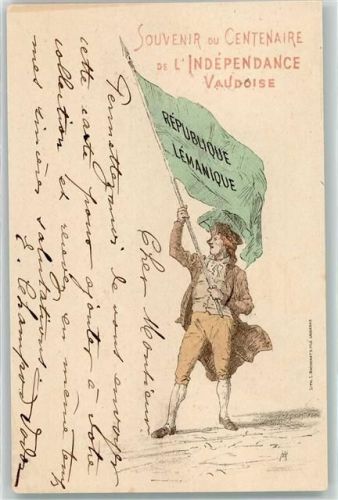 SOUVENIR DU CENTENAIRE
DE L'INDÉPENDANCE
VAUDOISE
RÉPUBLIQUE
LÉMANIQUE
Cher Monsieur
Permettez-moi de vous envoyer
cette carte pour ajouter à votre
collection et recevez en même temps
mes sincères salutations
E. Champod